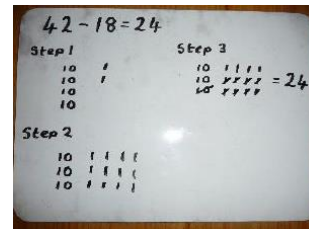 42-18=24
Step 1
10 '
10 '
10
10
Step 2
10 ' ' ' '
10 ' ' ' '
10 ' ' ' '
Step 3
10 ' ' ' '
10 ' ' ' ' = 24
10 ' ' ' '